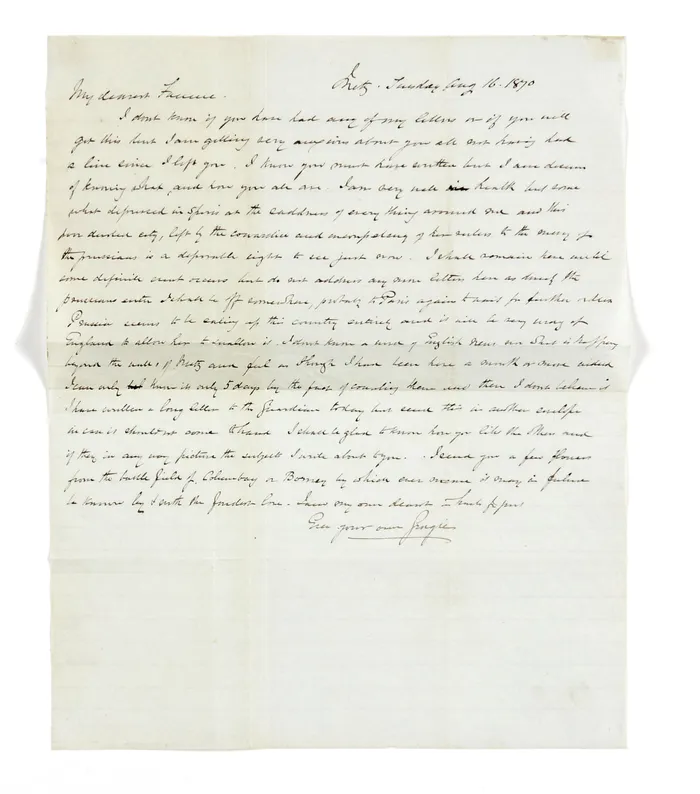 Metz. Tuesday Aug 16. 1870
My dearest
I dont know if you have had any of my letters or if you will
get this but I am getting very anxious about you all not having had
a line since I left you. I know you must have written but I am
of knowing what, and how you all are. I am very well in health but some
what depressed in spirits at the sadness of every thing around me and this
poor city, left by the cowardice and of her rulers to the mercy of
the prussians is a deplorable sight to see just now. I shall remain here until
some definite event occurs but do not address any more letters here as directly the
prussians enter I shall be off somewhere, probably to Paris again to wait for further
Prussia seems to be eating up this country entirely and it will be very wrong of
England to allow her to swallow it. I dont know a word of English news or what is happening
beyond the walls of Metz and feel as though I have been here a month or more indeed
I can only know its only 5 days by the fact of counting them and then I dont believe it
I have written a long letter to the Guardian today but send this in another envelope
in case it should not come to hand. I shall be glad to know how you like the other and
if they in any way picture the subjects I write about to you. I send you a few flowers
from the battle field of or Borney by which ever name it may in future
be known by & with the fondest love. I am my own dearest
Ever your own